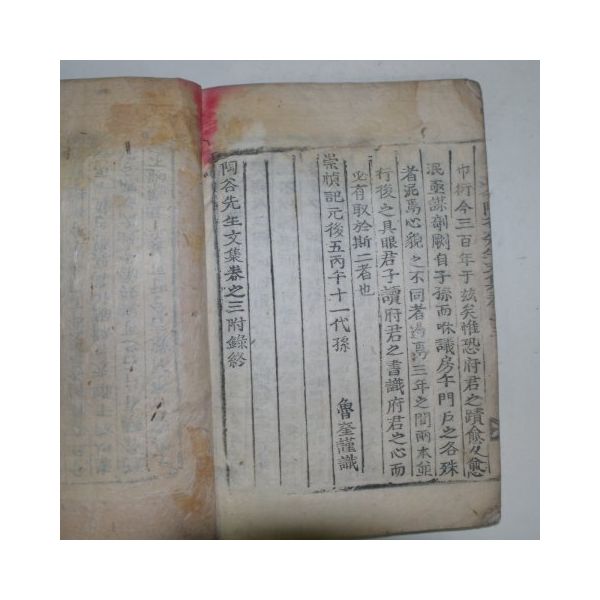 巾衍今三百年于玆矣惟恐府君之蹟愈久愈
泯亟謀剞劂自子孫而咻議房午門戶之各殊
者泥焉心貌之不同者過焉三年之間兩本並
行後之具眼君子讀府君之書識府君之心而
必有取於斯二者也
崇禎記元後五丙午十一代孫 魯奎謹識
陶谷先生文集卷之三附錄終